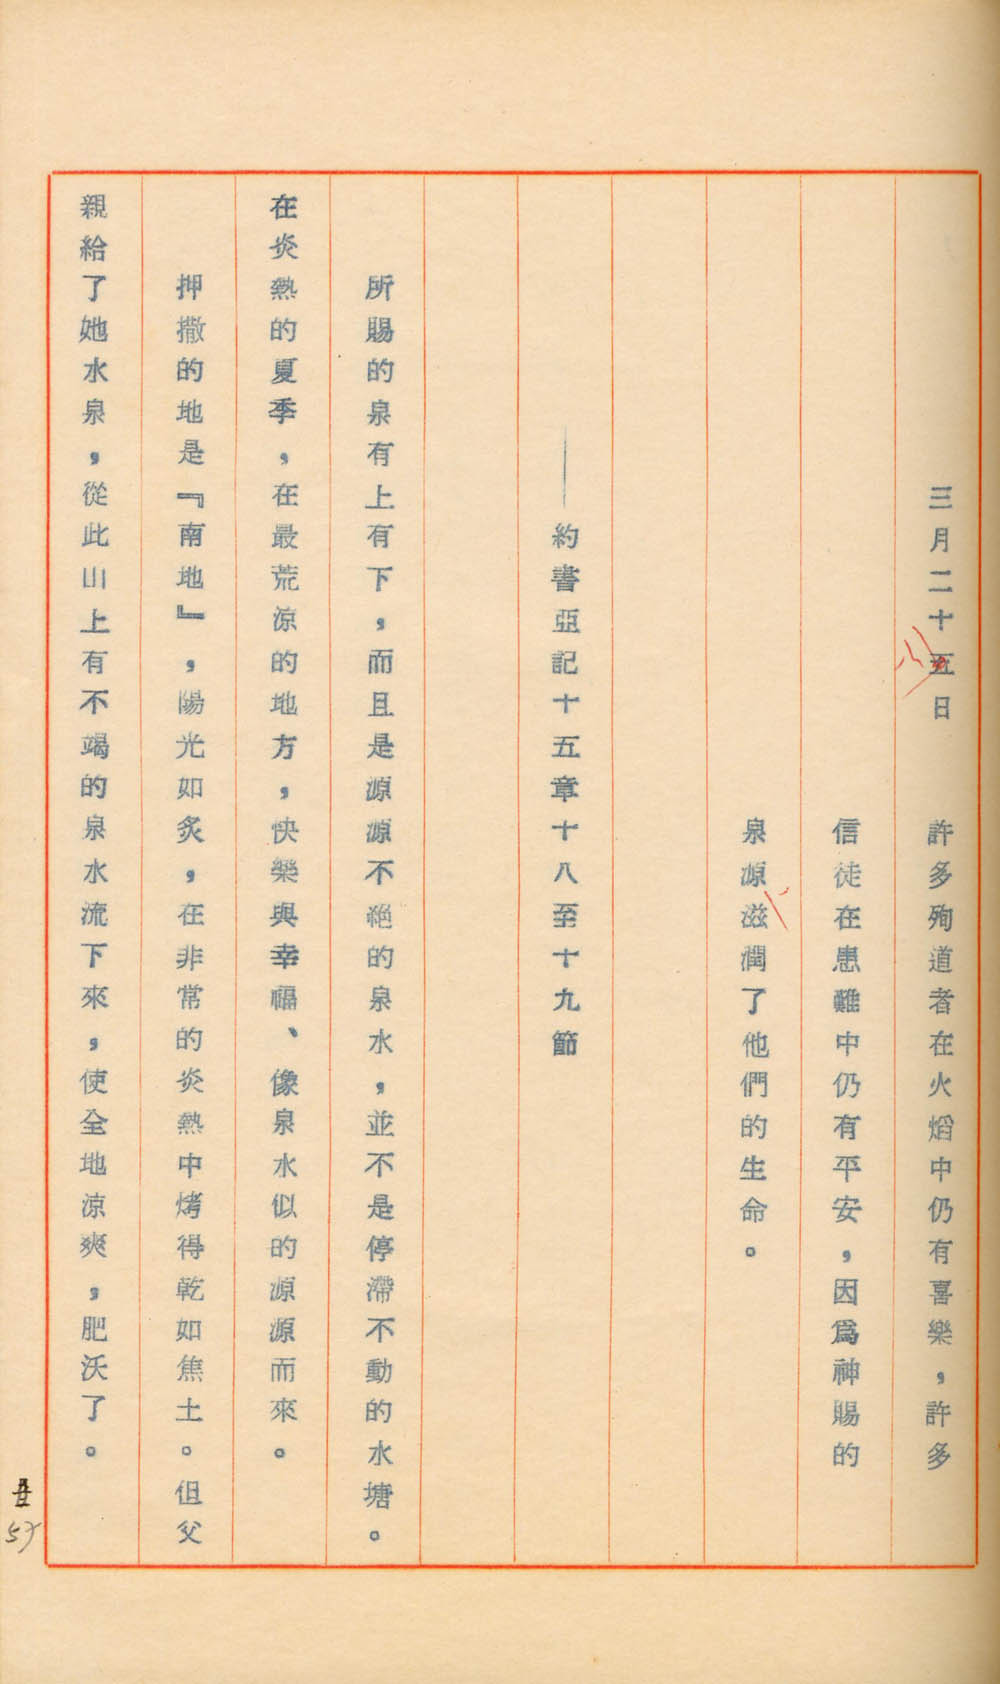 三月二十五日　許多殉道者在火焰中仍有喜樂，許多
信徒在患難中仍有平安，因爲神賜的
泉源滋潤了他們的生命。
——約書亞記十五章十八至十九節
所賜的泉有上有下，而且是源源不絕的泉水，並不是停滯不動的水塘。
在炎熱的夏季，在最荒涼的地方，快樂與幸福、像泉水似的源源而來。
押撒的地是『南地』，陽光如炙，在非常的炎熱中烤得乾如焦土。但父
親給了她水泉，從此山上有不竭的泉水流下來，使全地涼爽，肥沃了。